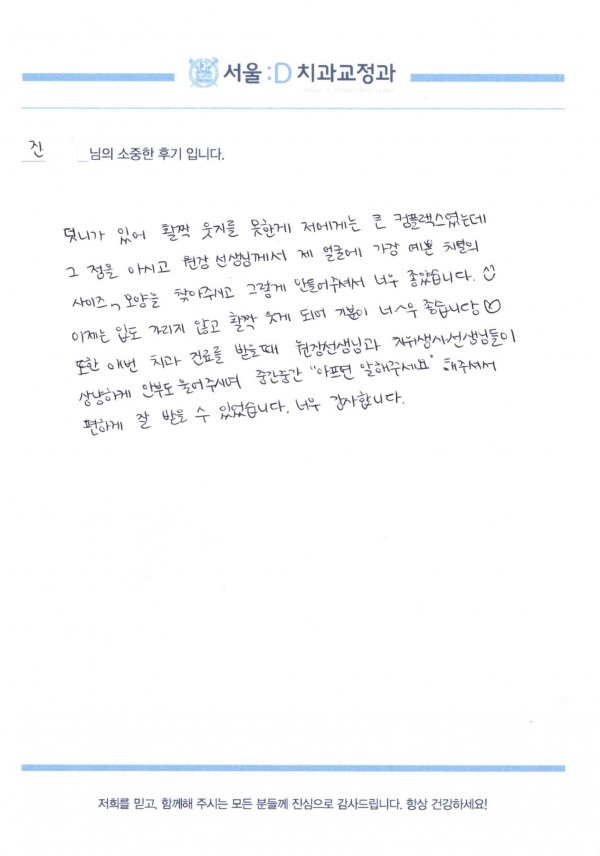 서울:D 치과교정과
진 님의 소중한 후기 입니다.
덧니가 있어 활짝 웃지를 못한게 저에게는 큰 컴플랙스였는데
그 점을 아시고 원장선생님께서 제 얼굴에 가장 예쁜 치열의
사이즈, 모양을 찾아주시고 그렇게 만들어주셔서 너무 좋았습니다.
이제는 입도 가리지 않고 활짝 웃게 되어 기분이 너~무 좋습니당♡
또한 매번 치과 진료를 받을때 원장선생님과 치위생사선생님들이
상냥하게 안부도 물어주시며 중간중간 "아프면 말해주세요" 해주셔서
편하게 잘 받을 수 있었습니다. 너무 감사합니다.
저희를 믿고, 함께해 주시는 모든 분들께 진심으로 감사드립니다. 항상 건강하세요!